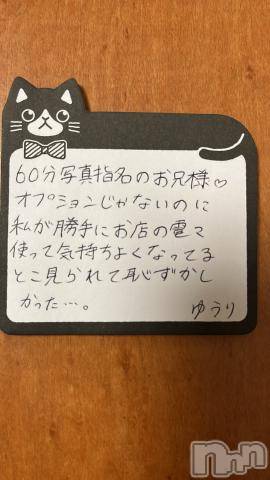 60分写真指名のお兄様♡
オプションじゃないのに
私が勝手にお店の電マ
使って気持ちよくなってる
とこ見られて恥ずかし
かった…。
ゆうり
Nnn